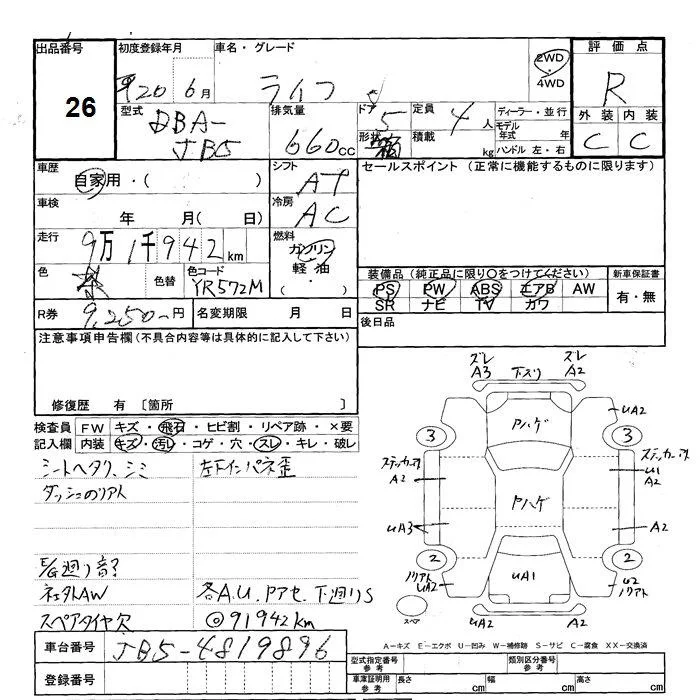 出品番号 初度登録年月 車名・グレード 2WD・4WD 評価点
26 H20年 6月 ライフ R
型式 排気量 ドア 定員 ディーラー・並行 外装 内装
DBA-JB5 660cc 5 4人 モデル年式 年 C C
形状 箱 積載 kg ハンドル 左・右
車歴 シフト セールスポイント(正常に機能するものに限ります)
自家用・( ) AT
車検 冷房
年 月( 日) AC
走行 燃料
9万1千942km ガソリン
色 色替 色コード 軽油 装備品(純正品に限り○をつけてください) 新車保証書
YR572M ( ・ ) PS PW ABS エアB AW 有・無
SR ナビ TV カワ
R券 9,250円 名変期限 月 日 後日品
注意事項申告欄(不具合内容等は具体的に記入して下さい)
修復歴 有 〔箇所 〕
検査員 FW キズ・飛石・ヒビ割・リペア跡・×要
記入欄 内装 キズ・汚レ・コゲ・穴・スレ・キレ・破レ
シートヘタリ、シミ 左下インパネ歪
ダッシュのリアト
E/G廻り音?
社外AW 各A.U.Pアセ、下廻りS
スペアタイヤ欠 ◎91942km
車台番号 JB5-4819896
登録番号
ズレ A3 下スリ ズレ A2
Pハゲ UA2
3 3
ステッカーア A2 ステッカーア U1 A2
Pハゲ
UA3 A2
2 2
ノリアト UA2 UA1 U2 ノリアト
スペア UA2 A2
A-キズ E-エクボ U-凹み W-補修跡 S-サビ C-腐食 XX-交換済
型式指定番号 参考 類別区分番号 参考
車庫証明用 参考 長さ cm 幅 cm 高さ cm